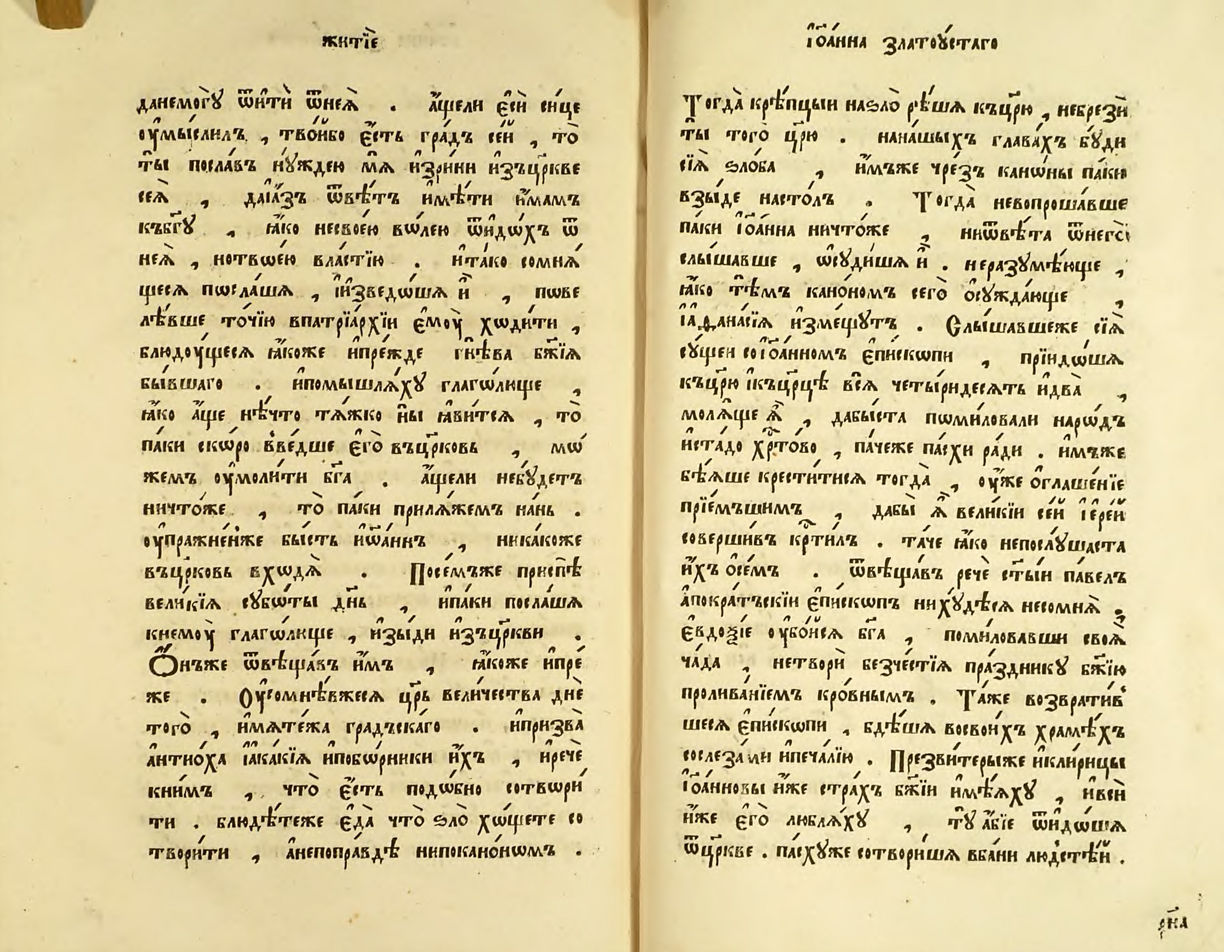 житїе
данемогꙋ̀ ѿитѝ ѿнеѧ̀ . а҆́щели є҆сѝ си́це
оу҆мы́слилъ , тво́ибо є҆́сть гра́дъ се́й , то̀
ты̀ посла́въ нꙋ́ждею мѧ̀ и҆зри́ни и҆зъцр҃кве
сеѧ̀ , даїа҆́зъ ѿвѣ́тъ и҆мѣ́ти и҆́мамъ
къбг҃ꙋ , ꙗ҆́ко несвоею во́лею ѿидѡ́хъ ѿ
неѧ̀ , нотвѡею вла́стїю . и҆та́ко сомнѧ́
щесѧ пѡсла́шѧ , і҆и҆зведѡ́шѧ и҆̀ , пѡве
лѣ́вше то́чїю впатрїа́рхїи є҆моу̀ хѡди́ти ,
блюдоу́щесѧ ꙗ҆́коже и҆пре́жде гнѣ́ва бж҃їѧ
бы́вшаго . и҆помышлѧ́хꙋ глаго́лище ,
ꙗ҆́ко а҆́ще нѣ́что тѧ́жко и҆̀ны ꙗ҆ви́тсѧ , то̀
па́ки ско́рѡ вве́дше є҆го̀ въцр҃ковь , мѡ́
жемъ оу҆моли́ти бг҃а . а҆́щели небꙋ́детъ
ничто́же , то̀ па́ки прилѧ́жемъ на́нь .
оу҆пражне́нже бы́сть и҆ѡа́ннъ , ника́коже
въцр҃ковь вхѡдѧ̀ . Посе́мъже приспѣ̀
вели́кїѧ сꙋбѡ́ты дн҃ь , и҆па́ки посла́шѧ
кнемоу̀ глаго́лище , и҆зы́ди и҆зъцр҃кви .
Ѻ҆́нъже ѿвѣща́въ и҆̀мъ , ꙗ҆́коже и҆пре́
же . Оу҆сомнѣ́вжесѧ цр҃ь вели́чества дне
того̀ , и҆мѧте́жа гра́дъскаго . и҆призва̀
а҆нтиѡ́ха і҆а҆ка́кїѧ и҆побѡ́рники и҆́хъ , и҆речѐ
кни́мъ , что̀ є҆́сть подо́бно сотвори́
ти . блюдѣ́теже є҆да̀ что̀ ѕло̀ хѡ́щете со
твори́ти , а҆непопра́вдѣ нипокано́нѡмъ .
і҆ѡ҆а́нна златоу́стаго
Тогда̀ крѣ́пцыи наѕло̀ рѣ́шѧ къцр҃ю , небрезѝ
ты̀ того̀ цр҃ю . нана́шыхъ глава́хъ бꙋ́ди
сїѧ̀ ѕло́ба , и҆́мъже чре́зъ канѡ́ны па́ки
взы́де насто́лъ . Тогда̀ невопроша́вше
па́ки і҆ѡ҆а́нна ничто́же , ниѿвѣ́та ѿнегѡ̀
слы́шавше , ѡ҆сꙋди́шѧ и҆̀ . неразꙋмѣ́юще ,
ꙗ҆́ко тѣ́мъ кано́номъ сего̀ ѻ҆сꙋжда́юще ,
і҆а҆ѳана́сїѧ и҆зме́щꙋтъ . Слы́шавшеже сїѧ̀
сꙋ́щеи соі҆ѡ҆а́нномъ є҆пи́скопи , прїидо́шѧ
къцр҃ю и҆къцр҃цѣ всѝ четы́ридесѧть и҆два̀ ,
молѧ́ще ѧ҆̀ , дабы́ста пѡми́ловали наро́дъ
и҆ста́до хр҇то́во , па́чеже па́схи ра́ди . и҆́мъже
бѣ́ѧше крести́тисѧ тогда̀ , оу҆́же ѻ҆глаше́нїе
прїе́мъшимъ , дабы̀ ѧ҆̀ вели́кїи се́й і҆ере́й
соверши́въ кр҇ти́лъ . та́че ꙗ҆́ко непослꙋ́шаста
и҆́хъ ѻ҆се́мъ . ѿвѣща́въ речѐ ст҃ы́и па́велъ
а҆покра́тъскїи є҆пи́скопъ нихꙋдѣ́сѧ несомнѧ̀ ,
є҆ѵдоѯі́е оу҆бо́йсѧ бг҃а , поми́ловавши своѧ̀
ча́да , нетворѝ безче́стїѧ пра́здникꙋ бж҃їю
пролива́нїемъ кро́внымъ . Та́же возврати́в
шесѧ є҆пи́скѡпи , бдѣ́шѧ восвои́хъ хра́мѣхъ
сослеза́ми и҆печа́лїю . Презви́терыже и҆кли́рицы
і҆ѡ҆а́нновы и҆́же стра́хъ бж҃їи и҆мѣ́ѧхꙋ , и҆всѝ
и҆́же є҆го̀ люблѧ́хꙋ , тꙋ̀ а҆́бїе ѿидѡ́шѧ
ѿцр҃кве . па́схꙋже сотвори́шѧ вба́ни лю́дстѣй .
рк҃а